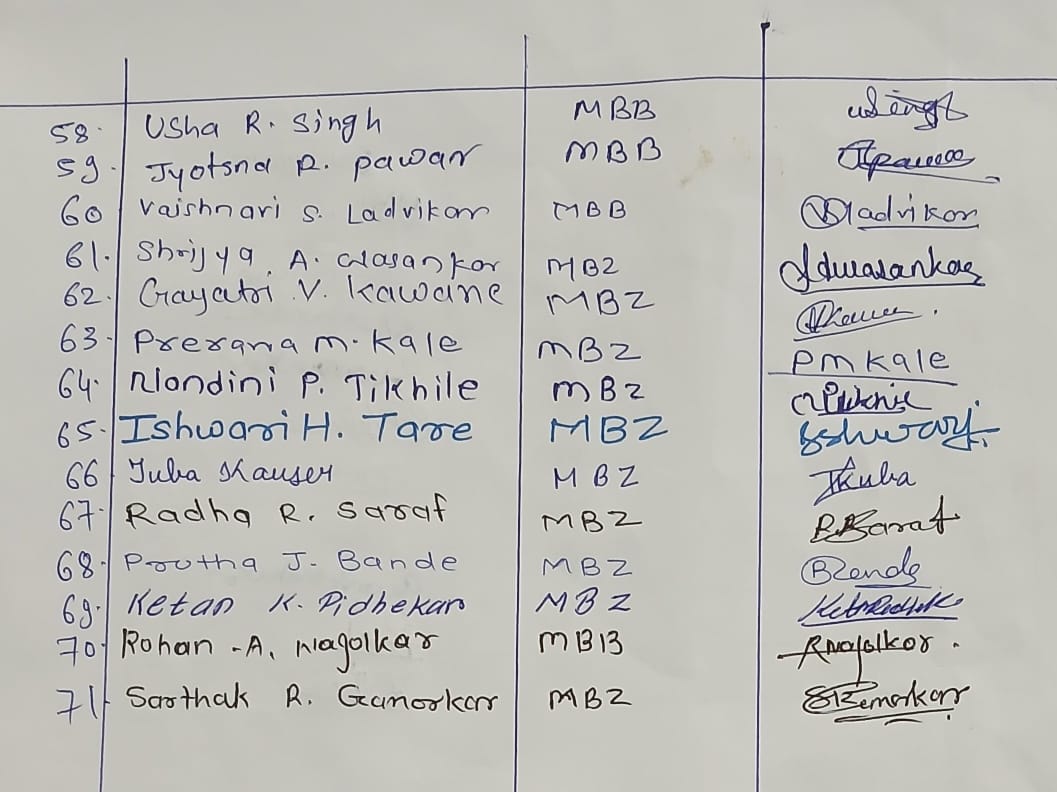 58. Usha R. Singh MBB USingh
59. Jyotsna R. pawar MBB
60 Vaishnavi S. Ladvikar MBB Ladvikar
61. Shrijya A. MBZ
62. Gayatri V. Kawane MBZ
63. Prerana m. kale MBZ PMKALE
64. Nandini P. Tikhile MBZ
65. Ishwari H. Tare MBZ Ishwari
66 Juba Kauser MBZ
67. Radha R. Saraf MBZ RRSaraf
68. Prutha J. Bande MBZ Bande
69. Ketan K. Pidhekar MBZ
70. Rohan A. Nagolkar MBB
71 Sarthak R. Ganorkar MBZ